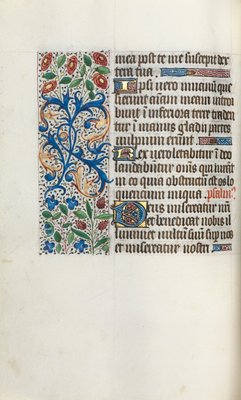 mea post te me suscepit dex
tera tua.
Ipsi vero in vanum que
sierunt animam meam introi
bunt in inferiora terre traden
tur in manus gladii partes
vulpium erunt.
Rex vero letabitur in deo
laudabitur omnes qui iurant
in eo quia obstructum est os lo
quentium iniqua. psalm9.
Deus misereatur nostri
et benedicat nobis il
luminet vultum suum sup nos
et misereatur nostri.